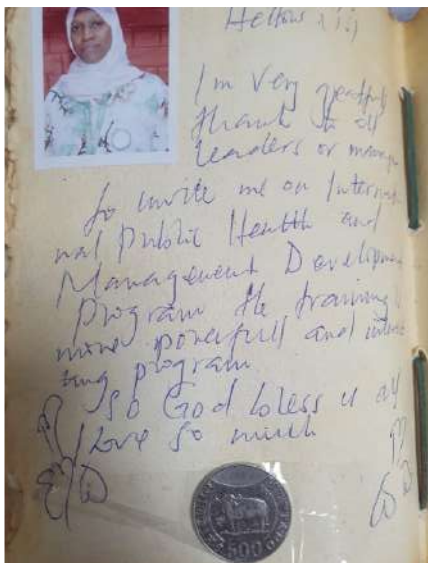 I'm very
thank to all
Leaders or manage
to invite me on Internatio
nal Public Health and
Management Developmen
Program the training
more powerfull and intres
ting program
so God bless u all
I Love so much
500